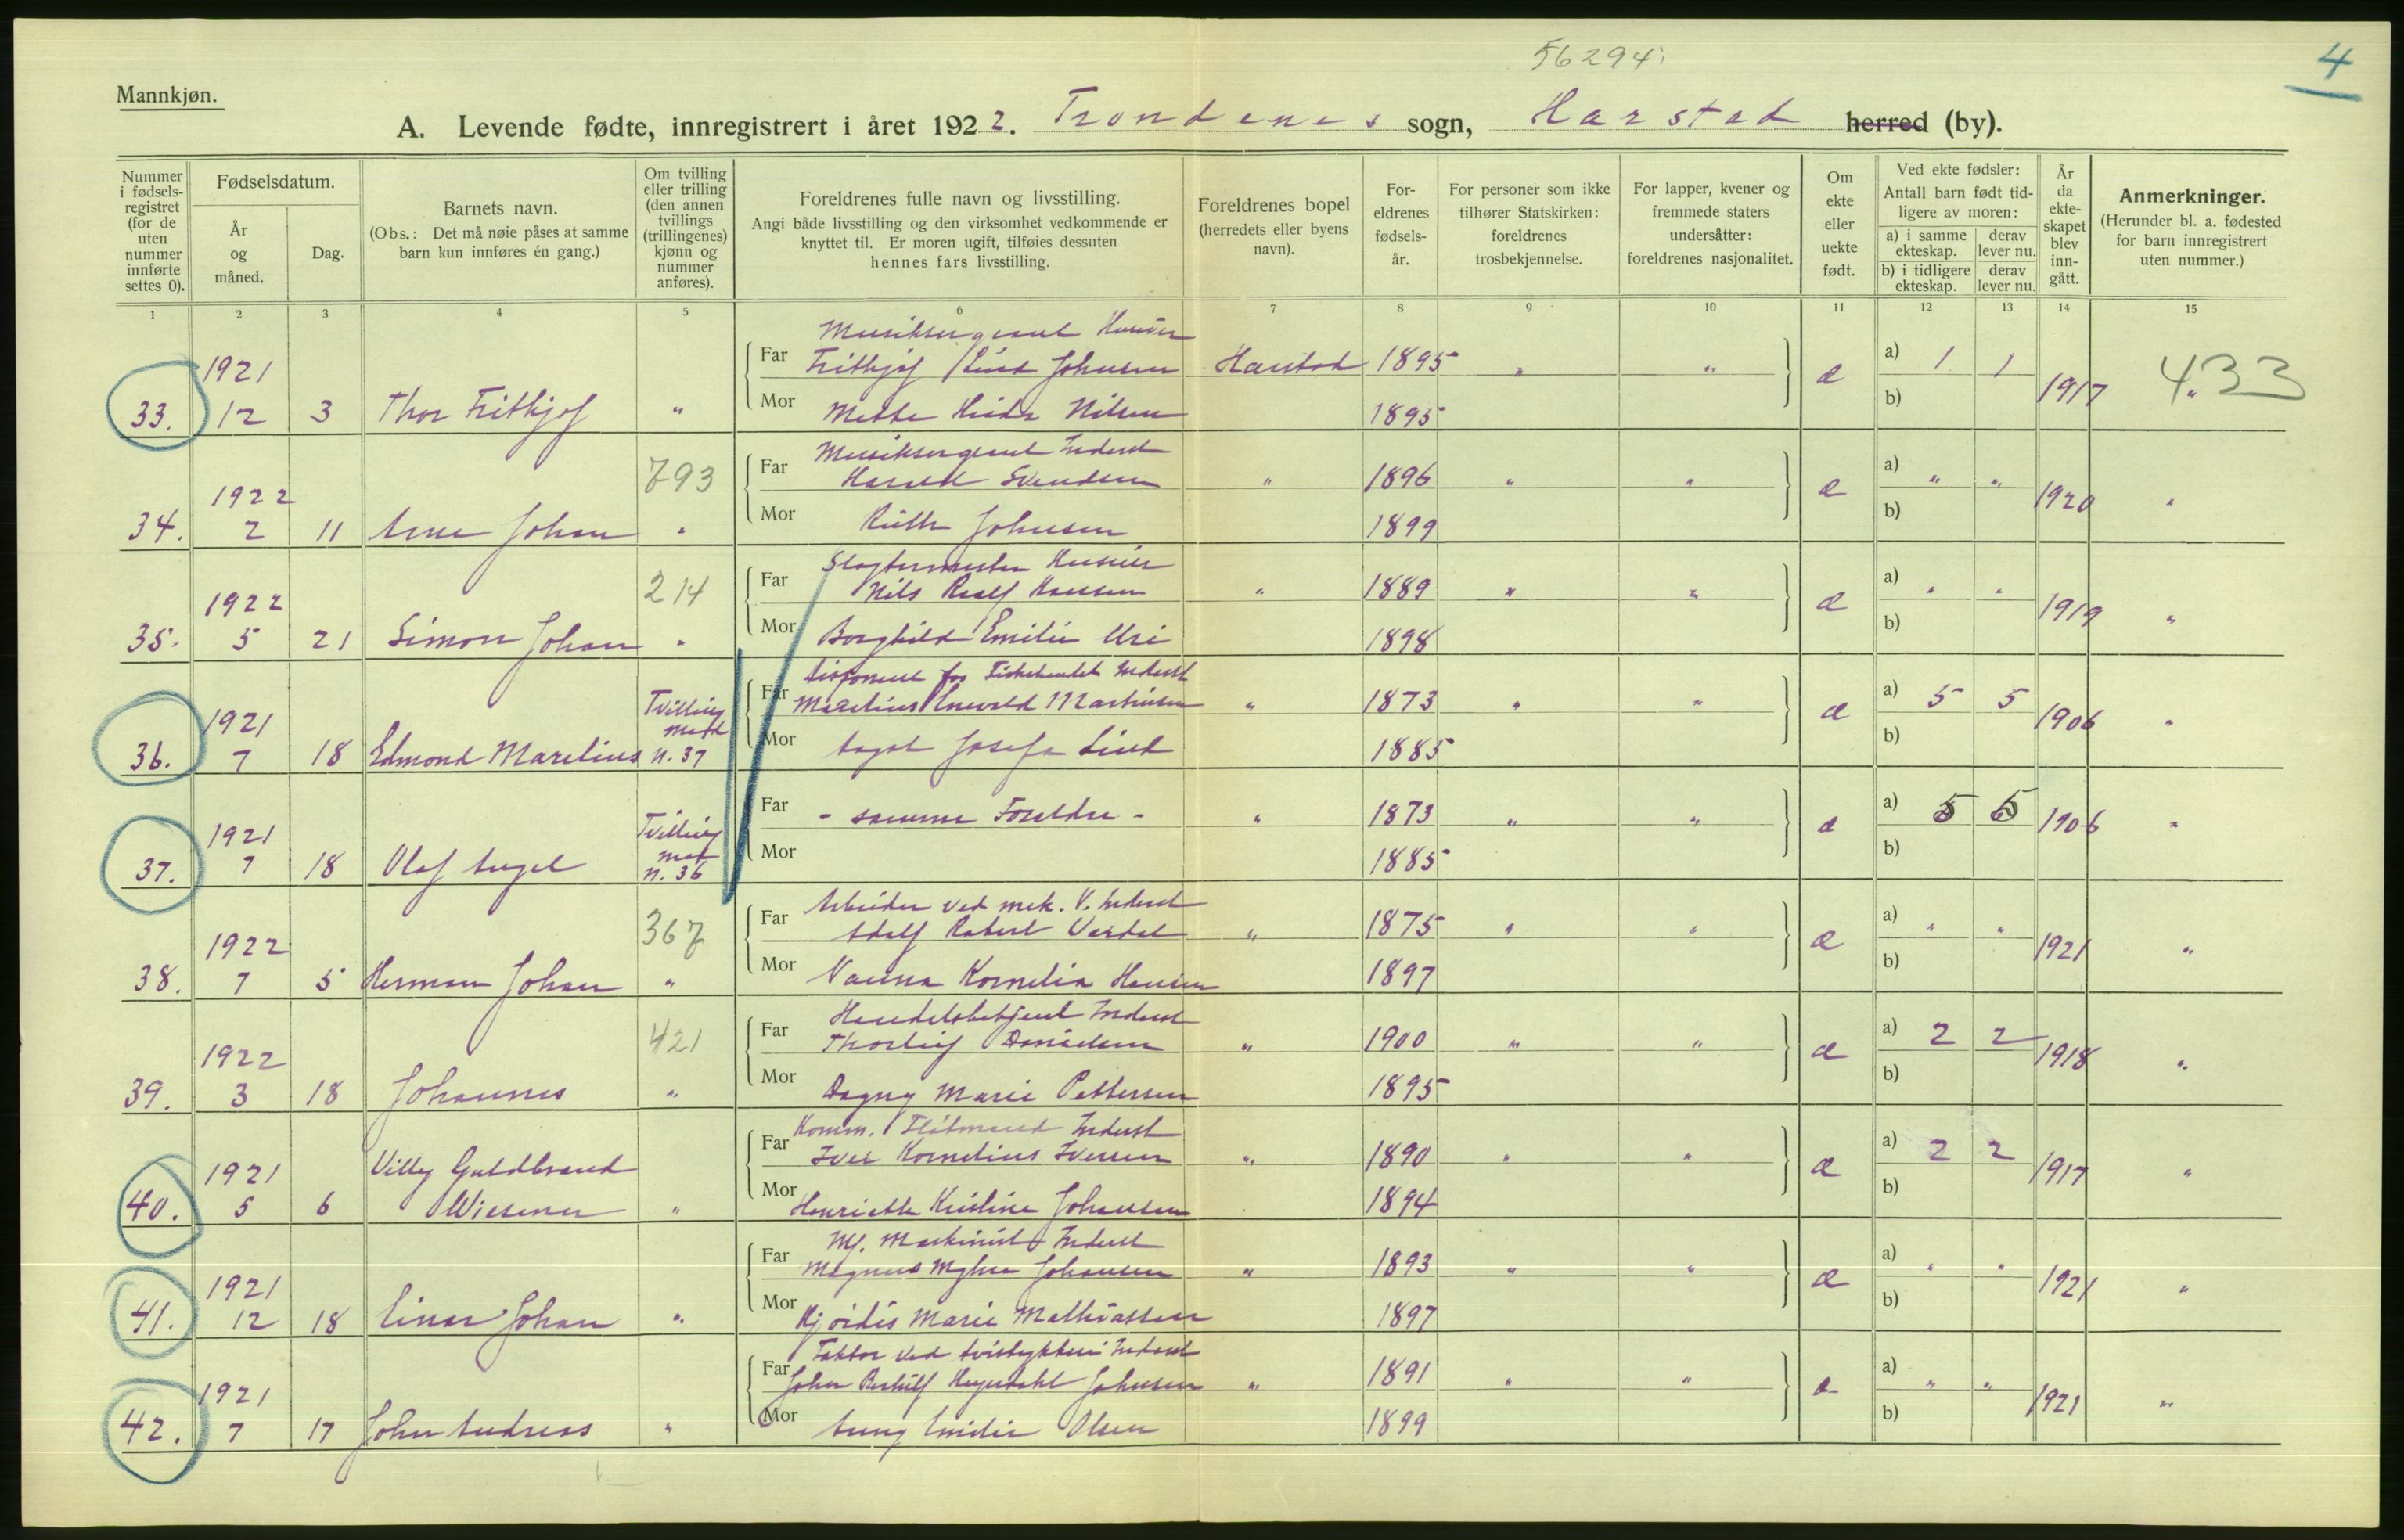 56294.
4
Mannkjøn.
A. Levende fødte, innregistrert i året 1922. Trondenes sogn, Harstad herred (by).
Nummer i fødsels-registret (for de uten nummer innførte settes 0).
Fødselsdatum.
År og måned.
Dag.
Barnets navn.
(Obs.: Det må nøie påses at samme barn kun innføres én gang.)
Om tvilling eller trilling (den annen tvillings (trillingenes) kjønn og nummer anføres).
Foreldrenes fulle navn og livsstilling.
Angi både livsstilling og den virksomhet vedkommende er knyttet til. Er moren ugift, tilføies dessuten hennes fars livsstilling.
Foreldrenes bopel (herredets eller byens navn).
For-eldrenes fødsels-år.
For personer som ikke tilhører Statskirken: foreldrenes trosbekjennelse.
For lapper, kvener og fremmede staters undersåtter: foreldrenes nasjonalitet.
Om ekte eller uekte født.
Ved ekte fødsler: Antall barn født tid-ligere av moren:
a) i samme ekteskap. derav lever nu.
b) i tidligere ekteskap. derav lever nu.
År da ekte-skapet blev inn-gått.
Anmerkninger.
(Herunder bl. a. fødested for barn innregistrert uten nummer.)
1 2 3 4 5 6 7 8 9 10 11 12 13 14 15
Musiksergeant Huseier
33. 1921 12 3 Thor Frithjof " Far Fritjof Lind Johnsen Harstad 1895 " " æ a) 1 1 1917 " 433
Mor Mette Hilda Nilsen 1895 b)
793 Musiksergeant Inderst
34. 1922 2 11 Arne Johan " Far Harald Svendsen " 1896 " " æ a) " " 1920 "
Mor Ruth Johnsen 1899 b)
214 Slagtermester Huseier
35. 1922 5 21 Simon Johan " Far Nils Rolf Hansen " 1889 " " æ a) " " 1919 "
Mor Borghild Emilie Uri 1898 b)
Disponent for Fiskehandel Inderst
36. 1921 7 18 Edmond Marelius Tvilling med n. 37 Far Marelius Enevold Martinsen " 1873 " " æ a) 5 5 1906 "
Mor Aagot Josefa Lind 1885 b)
37. 1921 7 18 Olaf Angel Tvilling med n. 36 Far - samme Foreldre - " 1873 " " æ a) 5 6 1906 "
Mor 1885 b)
367 Arbeider ved mek. V. Inderst
38. 1922 7 5 Herman Johan " Far Adolf Robert Verdal " 1875 " " æ a) " " 1921 "
Mor Nanna Kornelia Hansen 1897 b)
421 Handelsbetjent Inderst
39. 1922 3 18 Johannes " Far Thorleif Danielsen " 1900 " " æ a) 2 2 1918 "
Mor Dagny Marie Pettersen 1895 b)
Komm. Inderst
40. 1921 5 6 Villy Guldbrand Wiesener " Far Iver Kornelius Iversen " 1890 " " æ a) 2 2 1917 "
Mor Henriette Kristine Johansen 1894 b)
Maskinist Inderst
41. 1921 12 18 Einar Johan " Far Magnus Myhre Johansen " 1893 " " æ a) " " 1921 "
Mor Hjørdis Marie Mathiassen 1897 b)
Faktor ved Avistrykkeri Inderst
42. 1921 7 17 John Andreas " Far John Heyerdahl Johnsen " 1891 " " æ a) " " 1921 "
Mor Auny Emilie Olsen 1899 b)